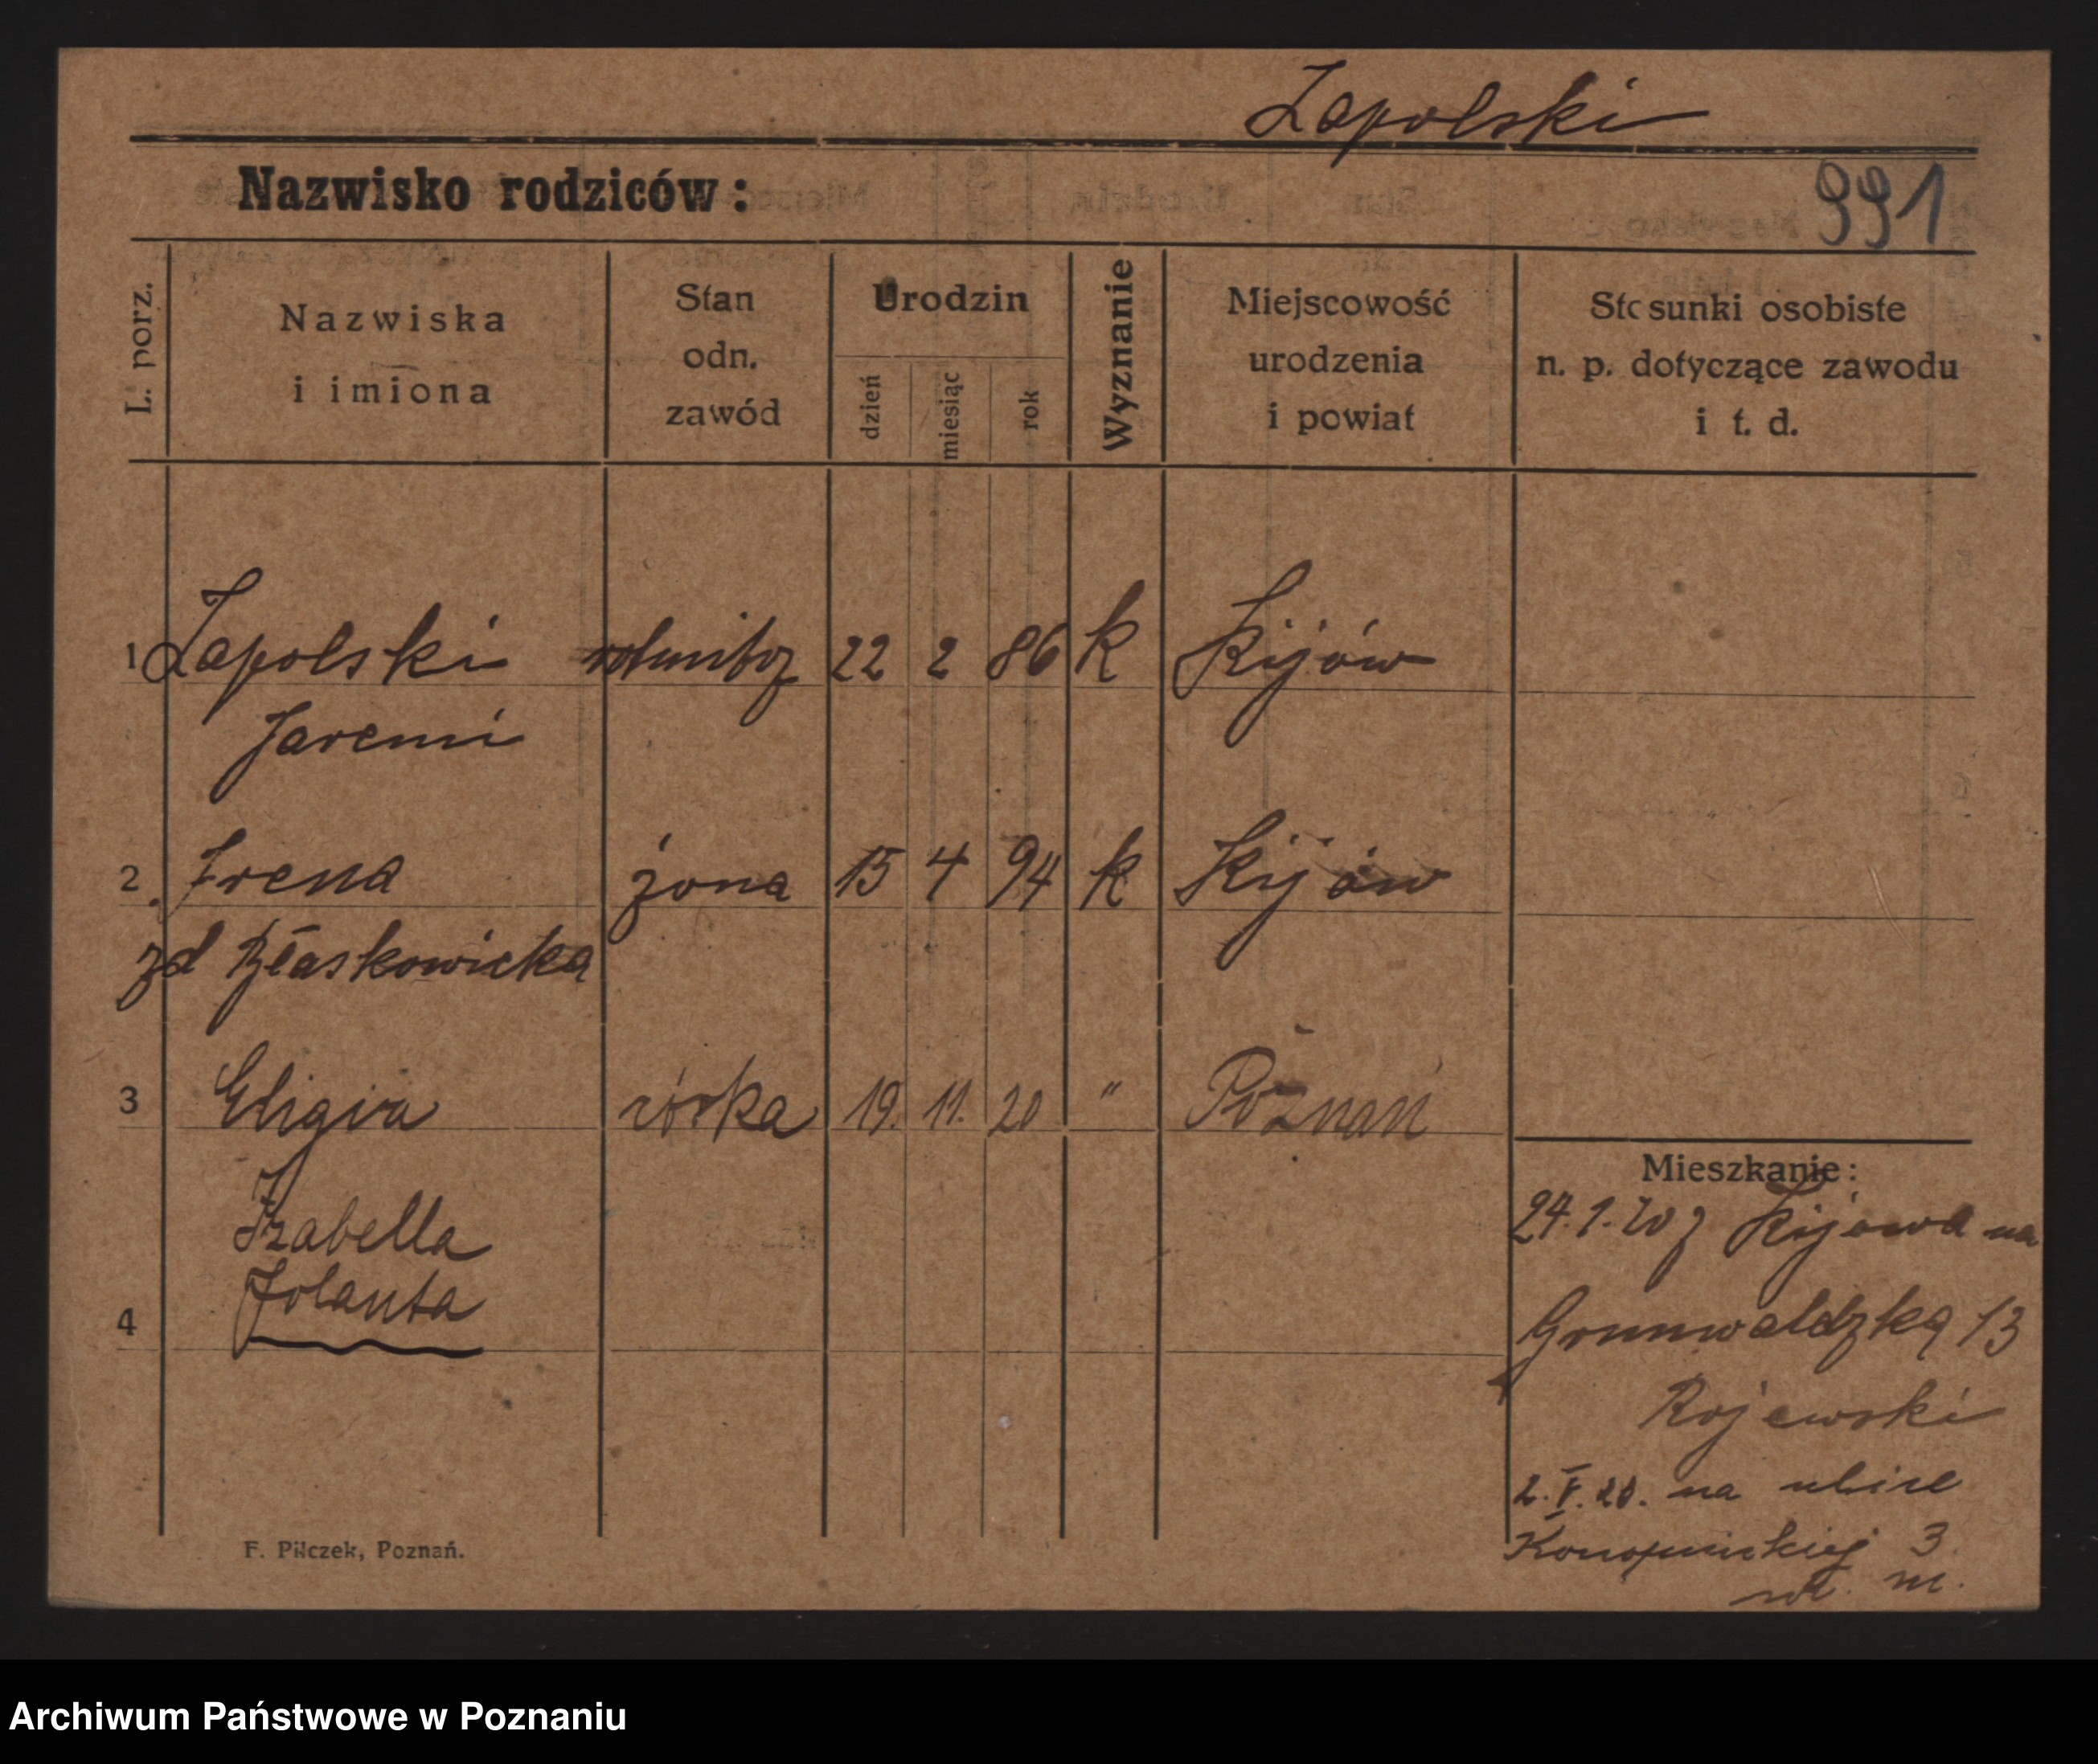 Zapolski
Nazwisko rodziców:
991
L. porz.
Nazwiska
i imiona
Stan
odn.
zawód
Urodzin
dzień
miesiąc
rok
Wyznanie
Miejscowość
urodzenia
i powiat
Stosunki osobiste
n. p. dotyczące zawodu
i t. d.
1 Zapolski rotmistrz 22 2 86 k Kijów
Jaremi
2 Irena żona 15 4 94 k Kijów
zd Błaskowicka
3 Eligia córka 19. 11. 20 " Poznań
Izabella
Jolanta
4
Mieszkanie:
24.1.20 z Kijowa na
Grunwaldzką 13
Rojewski
2.V.20. na ulice
Konopnickiej 3.
F. Pilczek, Poznań.
Archiwum Państwowe w Poznaniu